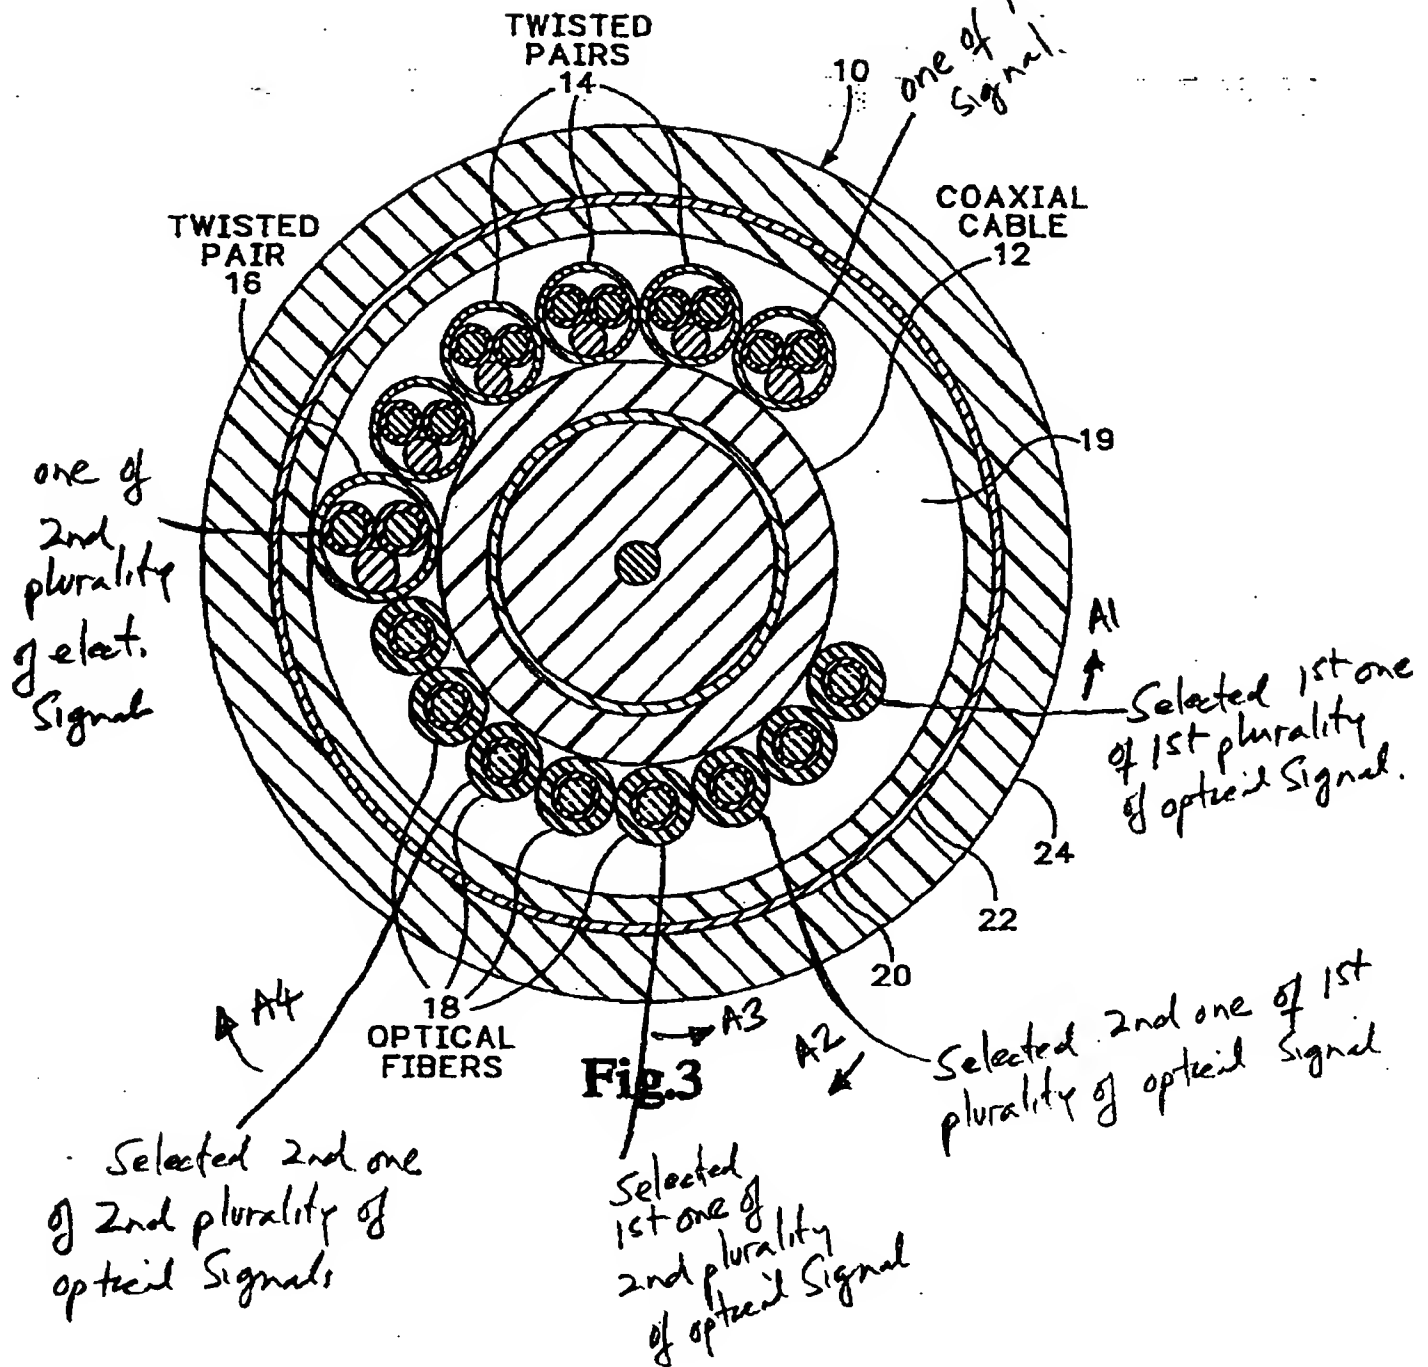 TWISTED
PAIRS
14
10
one of
Signal.
COAXIAL
CABLE
12
TWISTED
PAIR
16
19
one of
2nd
plurality
of elect.
Signal
A1
Selected 1st one
of 1st plurality
of optical Signal.
24
22
20
18
OPTICAL
FIBERS
A4
A3
A2
Fig.3
Selected 2nd one of 1st
plurality of optical Signal
Selected 2nd one
of 2nd plurality of
optical Signals
Selected
1st one of
2nd plurality
of optical Signal